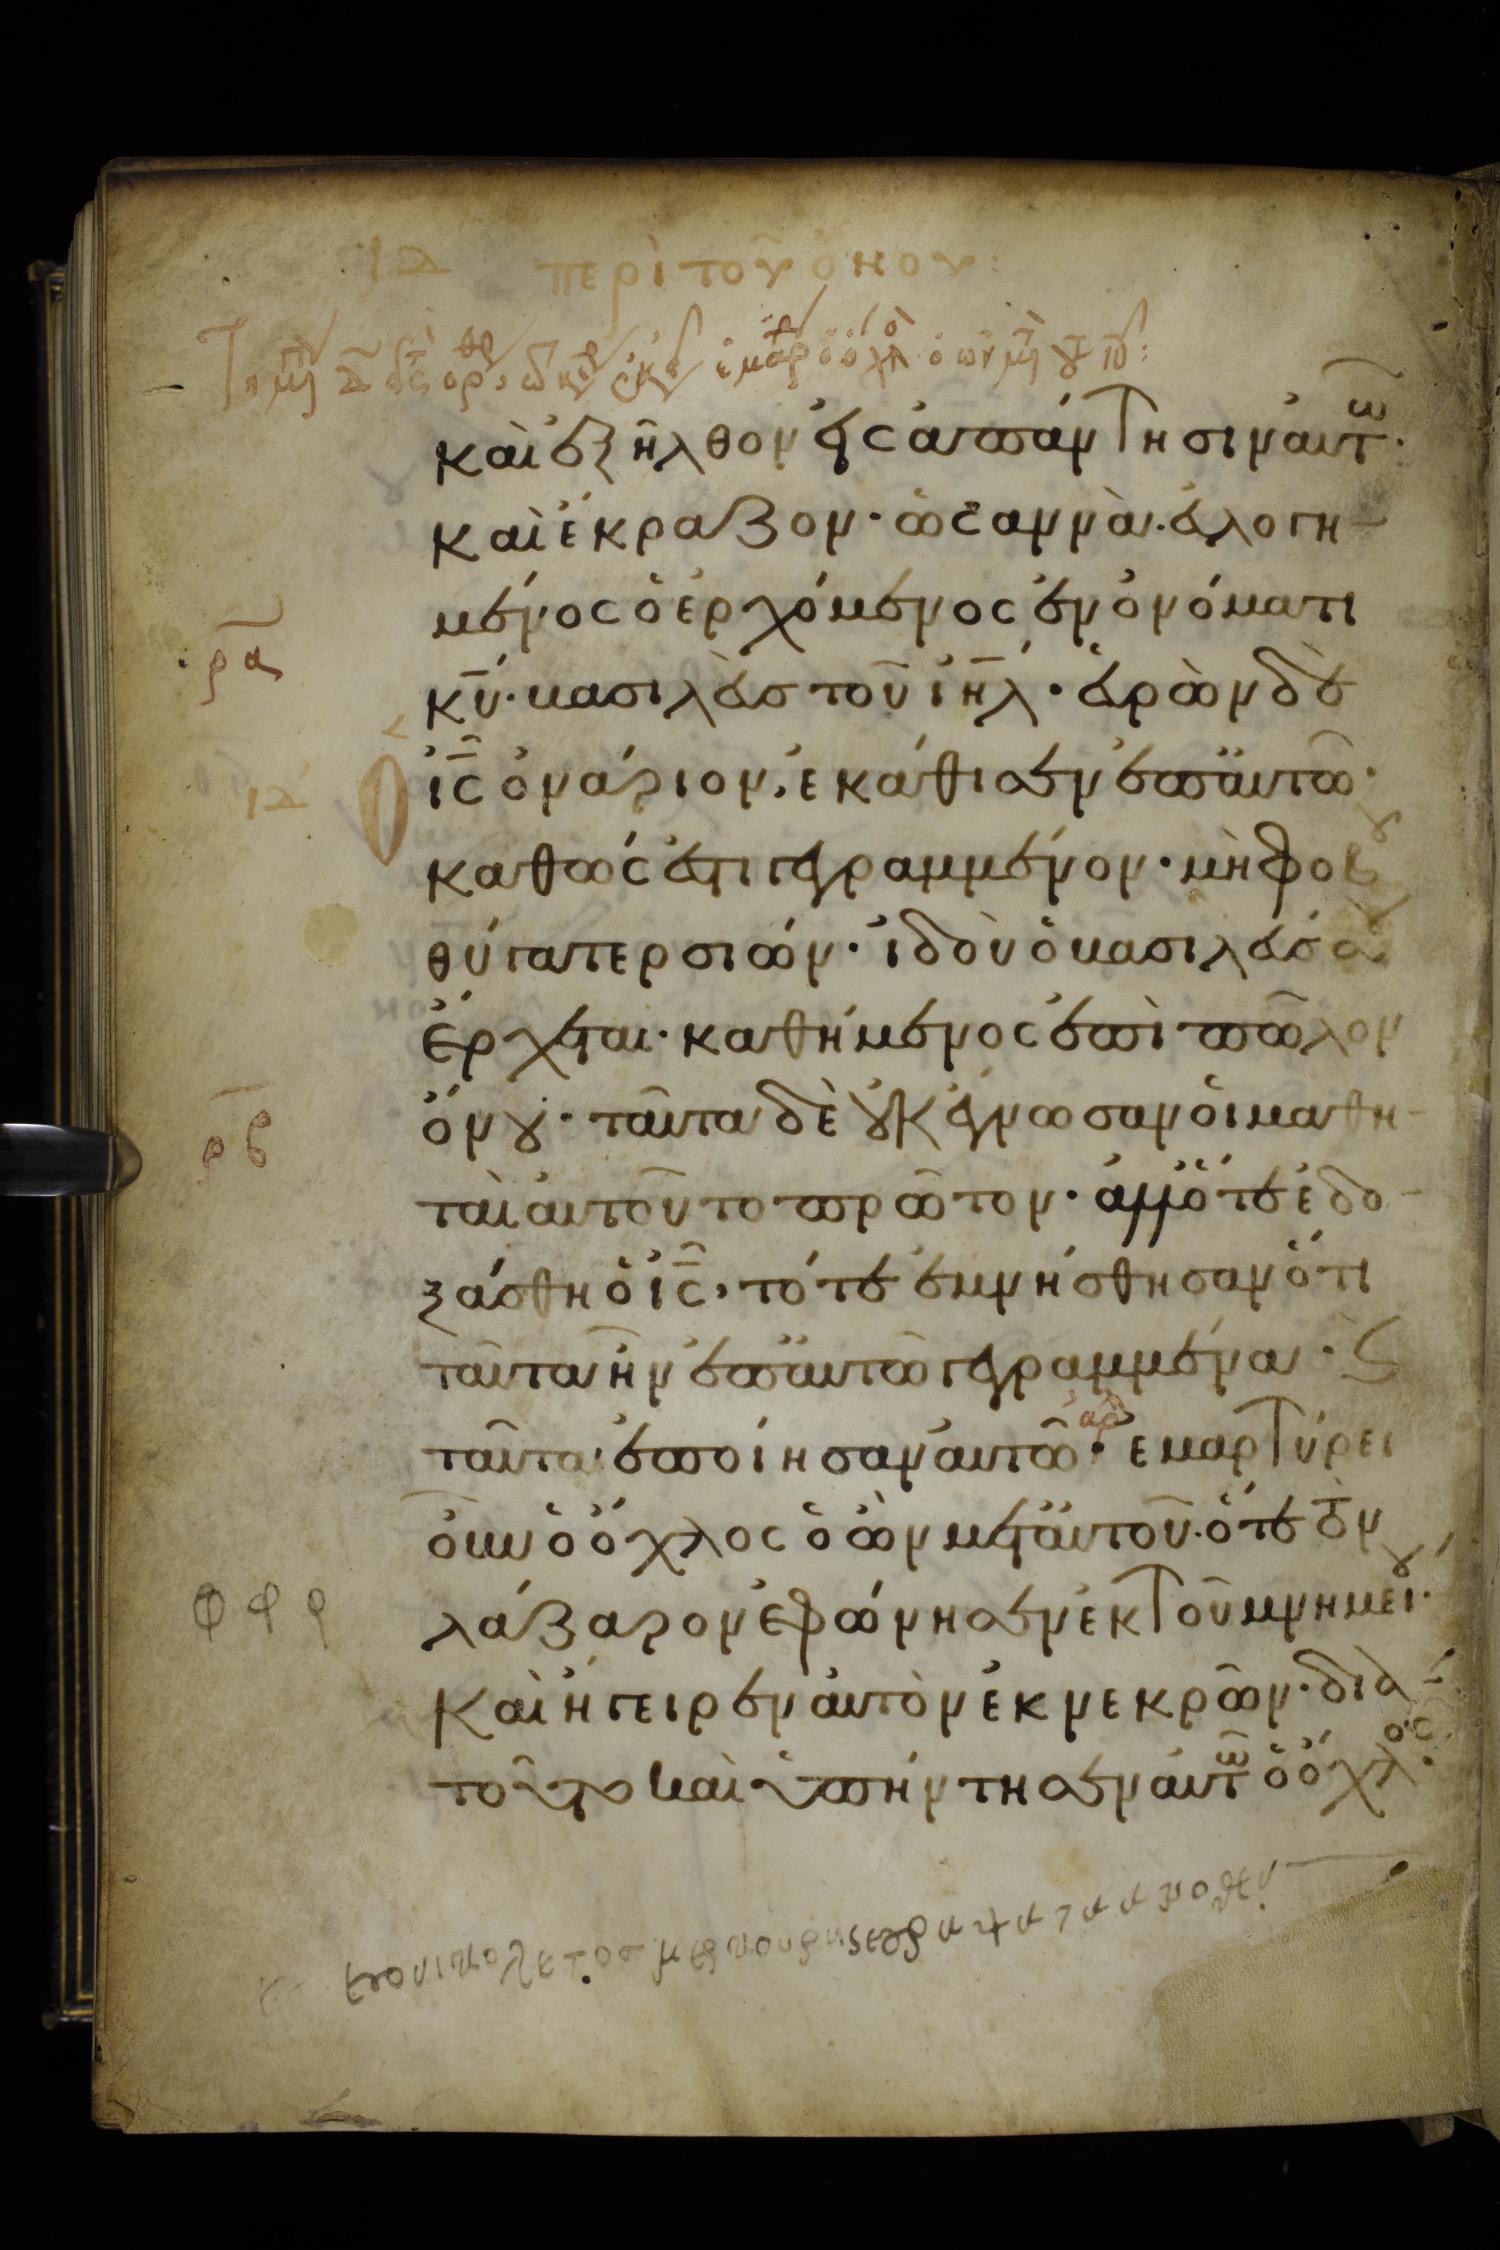 ιδ περὶ τοῦ ὄνου:
καὶ ἐξῆλθον εἰς ἀπάντησιν αυτῶ·
καὶ ἔκραζον· ὡσαννὰ· εὐλογη
μένος ὁ ἐρχόμενος ἐν ὀνόματι
ρα
κ̅υ̅· βασιλεὺς τοῦ ι̅η̅λ̅· εὑρὼν δὲ
ιδ
ὁ ι̅ς̅ ὀνάριον, ἐκάθισεν ἐπ' αυτῶ·
καθώς ἐστι γεγραμμένον· μὴ φοβοῦ
θύγατερ σιών· ἰδοὺ ὁ βασιλεύς σου
ἔρχεται· καθήμενος ἐπὶ πῶλον
ρβ
ὄνου· ταῦτα δὲ οὐκ ἔγνωσαν ὁι μαθη
ταὶ αυτοῦ το πρῶτον· ἀλλ' ὅτε ἐδο
ξάσθη ὁ ι̅ς̅, τότε ἐμνήσθησαν ὅτι
ταῦτα ἦν ἐπ' αυτῶ γεγραμμένα· ϛ
ταῦτα ἐποίησαν αυτῶ· ἀρχ εμαρτύρει
οὖν ὁ ὄχλος ὁ ὢν μετ' αυτοῦ· ὅτε τὸν
λάζαρον ἐφώνησεν ἐκ τοῦ μνημείου·
Καὶ ἤγειρεν αυτὸν ἐκ νεκρῶν· διὰ
τοῦτο καὶ ὑπήντησεν αυτῶ ὁ ὄχλος·